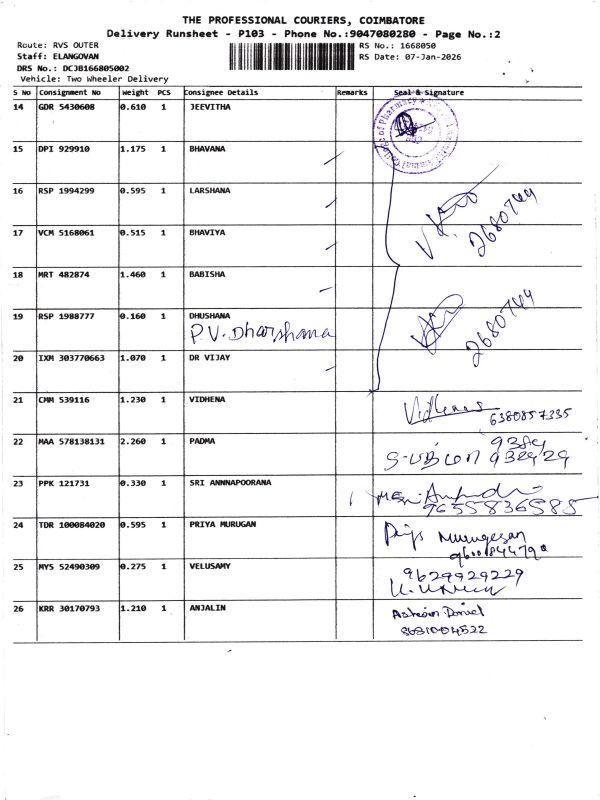 THE PROFESSIONAL COURIERS, COIMBATORE
Delivery Runsheet - P103 - Phone No.:9047080280 - Page No.:2
Route: RVS OUTER RS No.: 1668050
Staff: ELANGOVAN RS Date: 07-Jan-2026
DRS No.: DCJB166805002
Vehicle: Two Wheeler Delivery
S No Consignment No Weight PCS Consignee Details Remarks Seal & Signature
14 GDR 5430608 0.610 1 JEEVITHA
15 DPI 929910 1.175 1 BHAVANA
16 RSP 1994299 0.595 1 LARSHANA
17 VCM 5168061 0.515 1 BHAVIYA
2680744
18 MRT 482874 1.460 1 BABISHA
19 RSP 1988777 0.160 1 DHUSHANA
P.V. Dharshana
2680744
20 IXM 303770663 1.070 1 DR VIJAY
21 CMM 539116 1.230 1 VIDHENA
6380857335
22 MAA 578138131 2.260 1 PADMA
23 PPK 121731 0.330 1 SRI ANNNAPOORANA
9655836585
24 TDR 100084020 0.595 1 PRIYA MURUGAN
Murugesan
25 MYS 52490309 0.275 1 VELUSAMY
9629929229
26 KRR 30170793 1.210 1 ANJALIN
Daniel